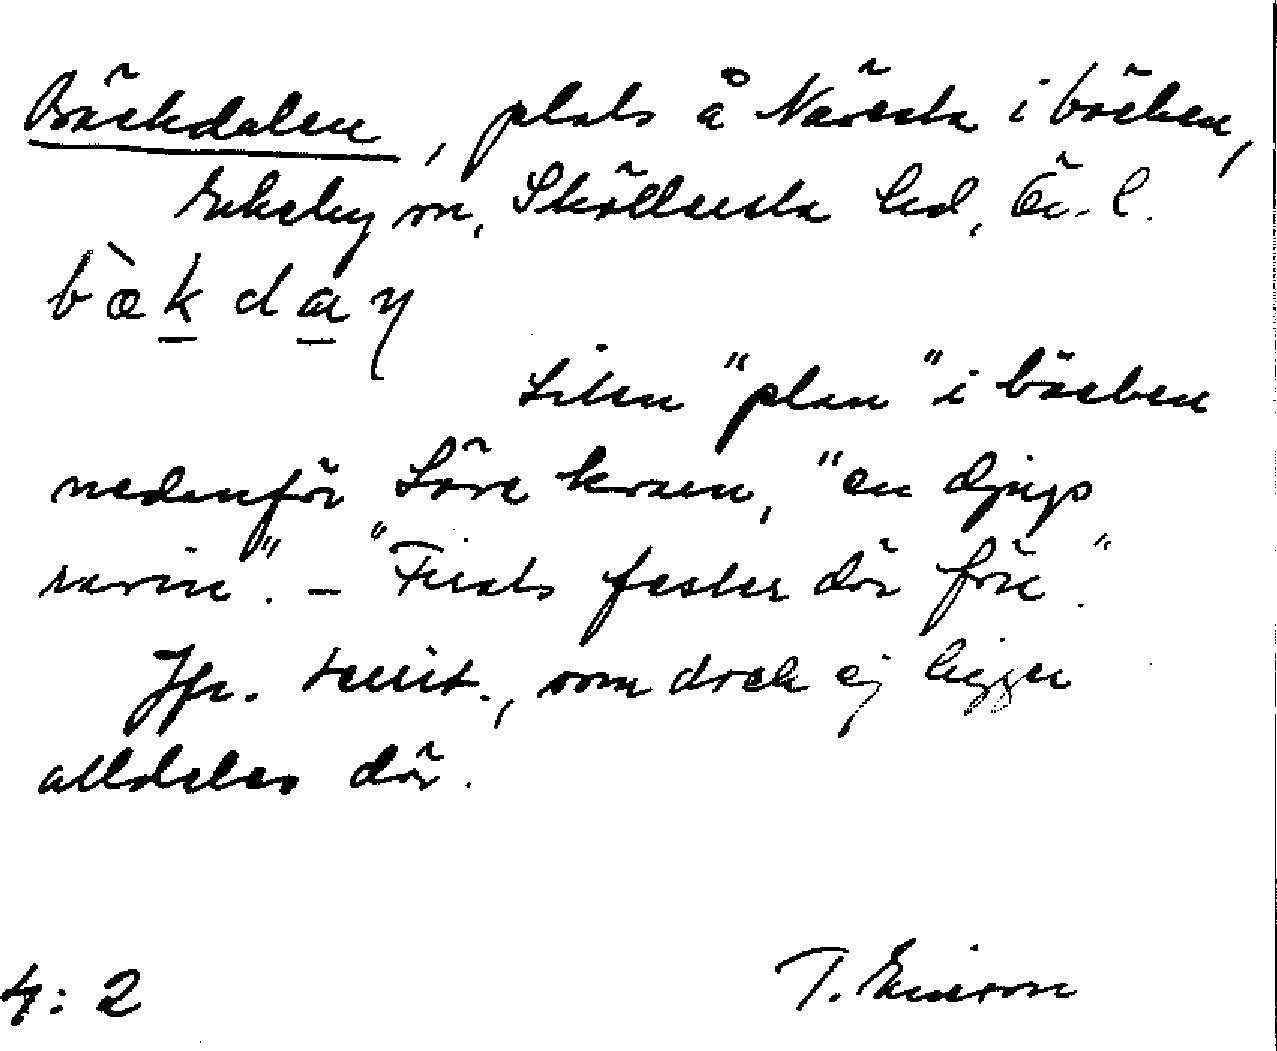 Bäckdalen, plats å Näresta i bäcken,
Ekeby sn, Sköllersta hd, Ör. l.
bæ̀kdaɳ
Liten "plan" i bäcken
nedanför Söre kvarn, "en djup
ravin". – "Firats fester där förr."
Jfr. terr., som dock ej ligger
alldeles där.
4: 2 T. Ericson